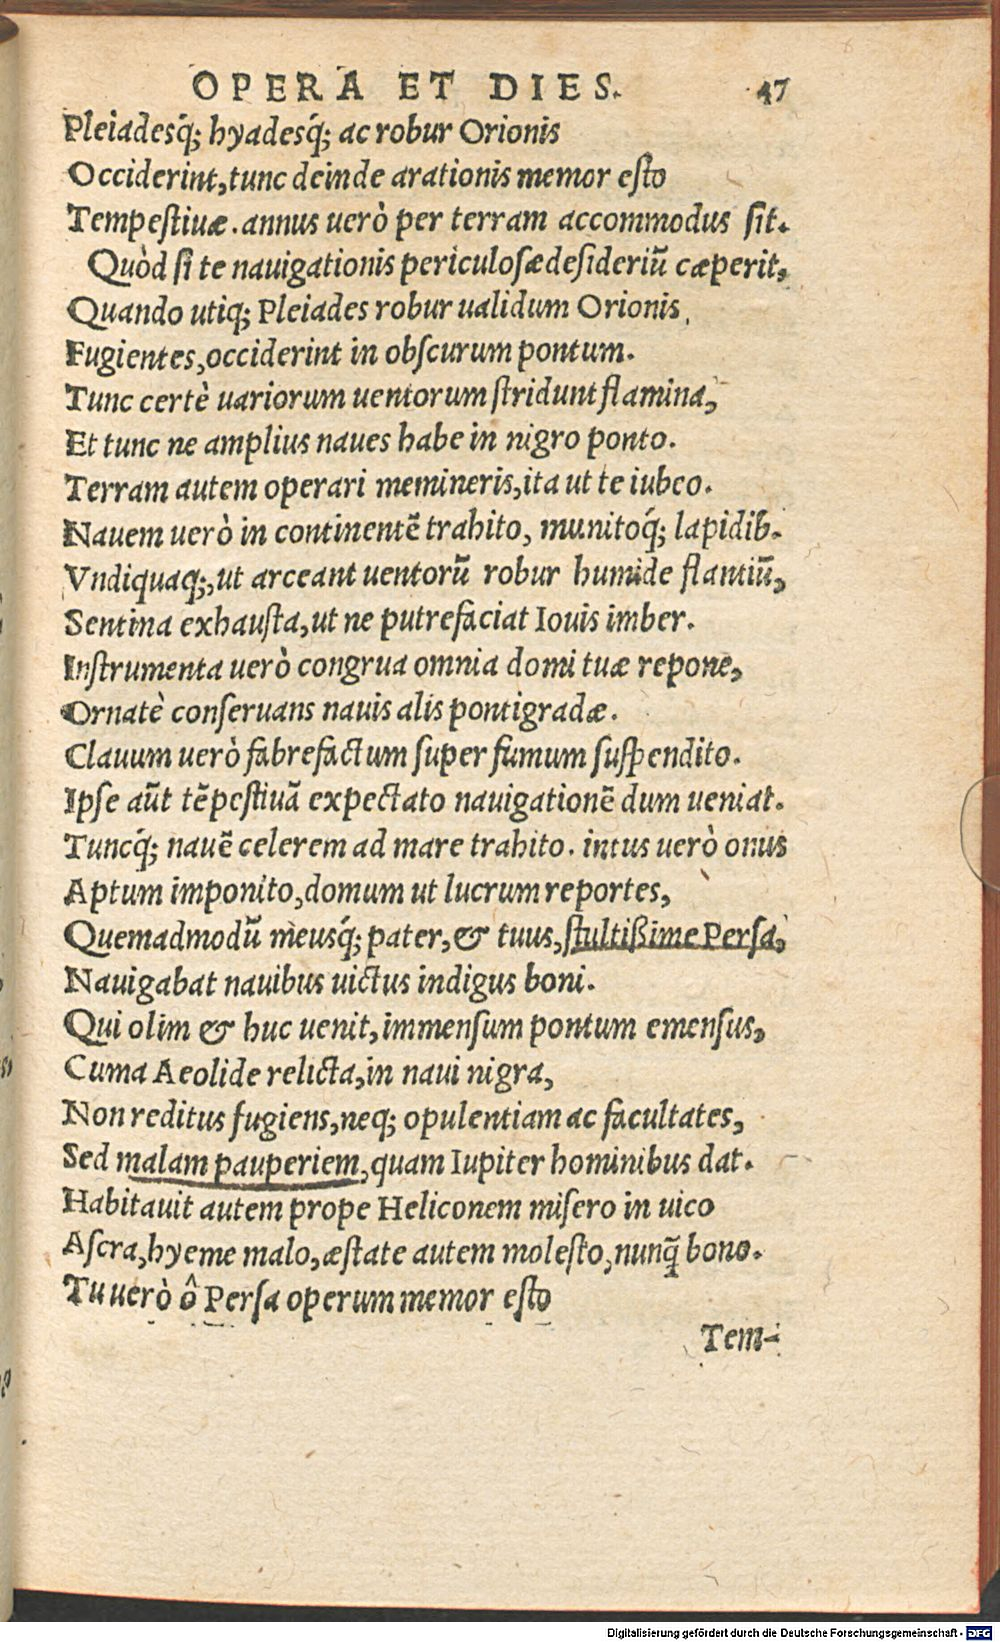 OPERA ET DIES. 47
Pleiadesq́; hyadesq́; ac robur Orionis
Occiderint, tunc deinde arationis memor esto
Tempestiuæ. annus uerò per terram accommodus sit.
Quòd si te nauigationis periculosæ desideriũ cæperit,
Quando utiq; Pleiades robur ualidum Orionis
Fugientes, occiderint in obscurum pontum.
Tunc certè uariorum uentorum stridunt flamina,
Et tunc ne amplius naues habe in nigro ponto.
Terram autem operari memineris, ita ut te iubeo.
Nauem uerò in continentẽ trahito, munitoq́; lapidib.
Vndiquaq;, ut arceant uentorũ robur humide flantiũ,
Sentina exhausta, ut ne putrefaciat Iouis imber.
Instrumenta uerò congrua omnia domi tuæ repone,
Ornatè conseruans nauis alis pontigradæ.
Clauum uerò fabrefactum super fumum suspendito.
Ipse aũt tẽpestiuã expectato nauigationẽ dum ueniat.
Tuncq́; nauẽ celerem ad mare trahito. intus uerò onus
Aptum imponito, domum ut lucrum reportes,
Quemadmodũ meusq́; pater, & tuus, stultißime Persa,
Nauigabat nauibus uictus indigus boni.
Qui olim & huc uenit, immensum pontum emensus,
Cuma Aeolide relicta, in naui nigra,
Non reditus fugiens, neq; opulentiam ac facultates,
Sed malam pauperiem, quam Iupiter hominibus dat.
Habitauit autem prope Heliconem misero in uico
Ascra, hyeme malo, æstate autem molesto, nunq̃ bono.
Tu uerò ô Persa operum memor esto
Tem-
Digitalisierung gefördert durch die Deutsche Forschungsgemeinschaft - DFG